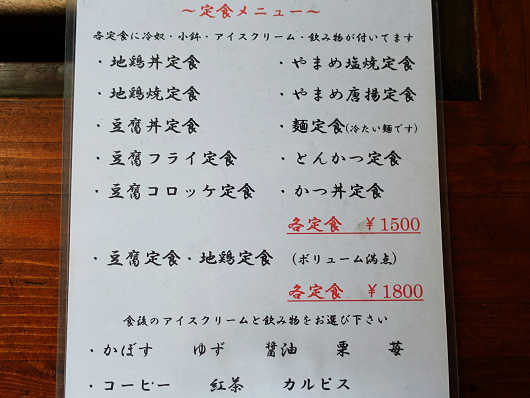 ～定食メニュー～
各定食に冷奴・小鉢・アイスクリーム・飲み物が付いてます
・地鶏丼定食 ・やまめ塩焼定食
・地鶏焼定食 ・やまめ唐揚定食
・豆腐丼定食 ・麺定食(冷たい麺です)
・豆腐フライ定食 ・とんかつ定食
・豆腐コロッケ定食 ・かつ丼定食
各定食 ￥1500
・豆腐定食・地鶏定食 (ボリューム満点)
各定食 ￥1800
食後のアイスクリームと飲み物をお選び下さい
・かぼす ゆず 醤油 栗 苺
・コーヒー 紅茶 カルピス